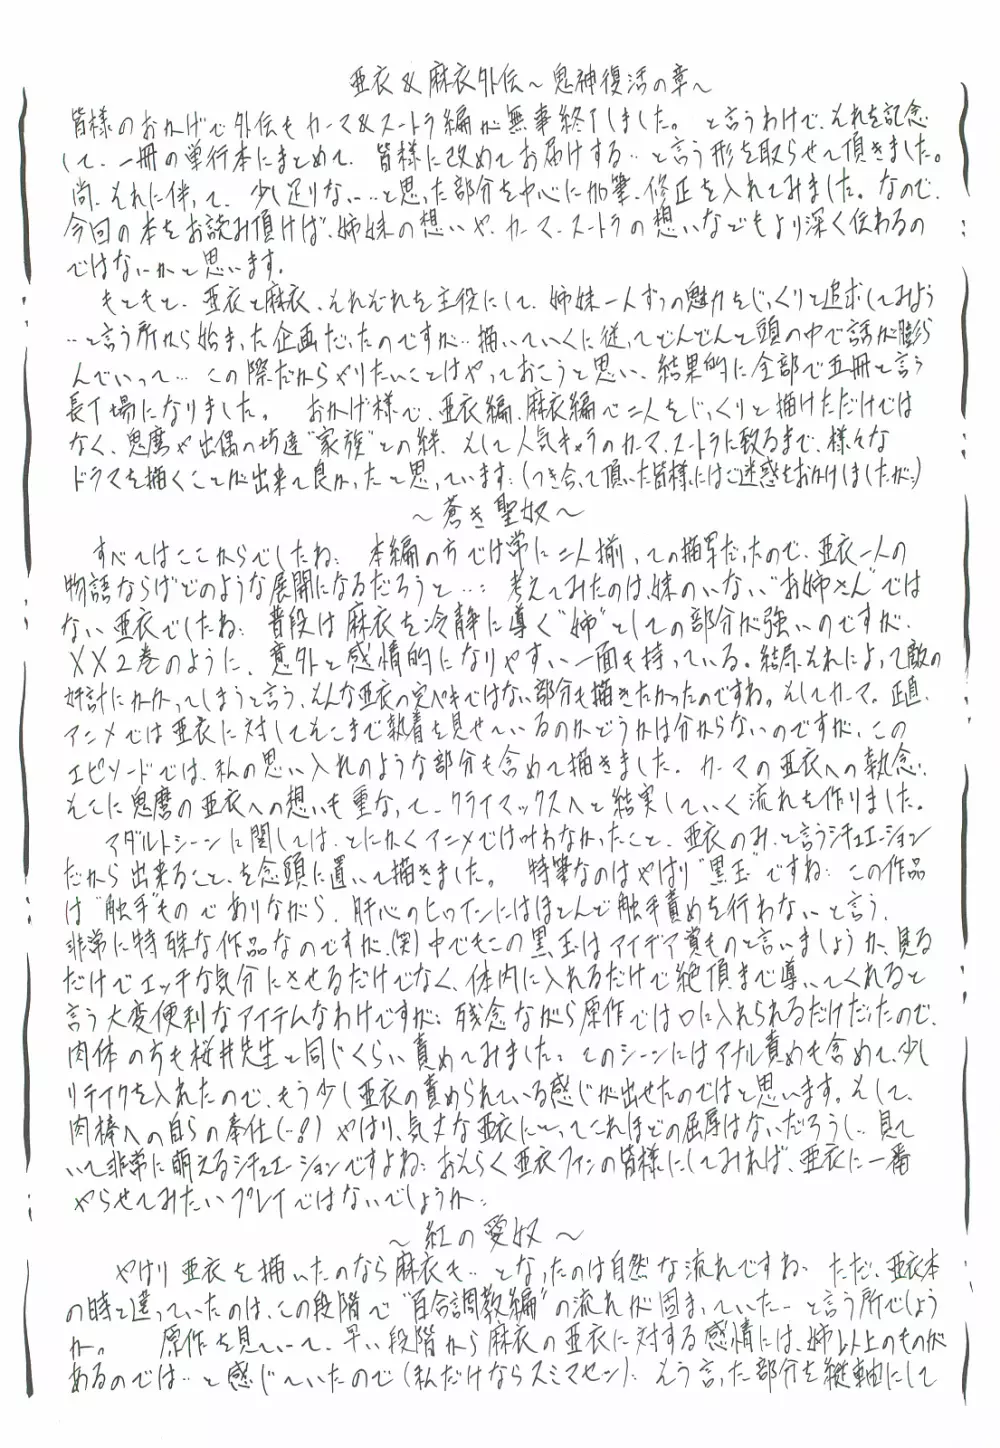 亜衣&麻衣外伝～鬼神復活の章～
皆様のおかげで外伝もカーマ&スートラ編が無事終了しました。 と言うわけで、それを記念
して、一冊の単行本にまとめて、皆様に改めてお届けする‥と言う形を取らせて頂きました。
尚、それに伴って、少し足りない‥と思った部分を中心に加筆、修正を入れてみました。なので、
今回の本をお読み頂けば、姉妹の想いや、カーマ、スートラの想いなどもより深く伝わるの
ではないかと思います。
もともと、亜衣と麻衣、それぞれを主役にして、姉妹一人ずつの魅力をじっくりと追求してみよう
‥と言う所から始まった企画だったのですが‥描いていくに従ってどんどんと頭の中で話が膨ら
んでいって… この際だからやりたいことはやっておこうと思い、結果的に全部で五冊と言う
長丁場になりました。 おかげ様で、亜衣編、麻衣編で二人をじっくりと描けただけでは
なく、鬼麿や出偶の坊達"家族"との絆、そして人気キャラのカーマ、スートラに致るまで、様々な
ドラマを描くことが出来て良かったと思っています:(つき合って頂いた皆様にはご迷惑をおかけしましたが:)
～蒼き聖奴～
すべてはここからでしたね: 本編の方では常に二人揃っての描写だったので、亜衣一人の
物語ならばどのような展開になるだろうと…: 考えてみたのは、妹のいない"お姉さん"では
ない亜衣でしたね: 普段は麻衣を冷静に導く"姉"としての部分が強いのですが、
XX2巻のように、意外と感情的になりやすい一面も持っている。結局、それによって敵の
奸計にかかってしまうと言う、そんな亜衣の完ペキではない部分も描きたかったのですね。そしてカーマ。正直、
アニメでは亜衣に対してそこまで執着を見せているのかどうかは分からないのですが、この
エピソードでは、私の思い入れのような部分も含めて描きました。カーマの亜衣への執念:、
そこに鬼麿の亜衣への想いも重なって‥クライマックスへと結実していく流れを作りました。
アダルトシーンに関しては、とにかくアニメでは叶わなかったこと、亜衣のみ、と言うシチュエーション
だから出来ること、を念頭に置いて描きました。 特筆なのはやはり"黒玉"ですね: この作品
は"触手"ものでありながら、肝心のヒロインにはほとんど触手責めを行わないと言う、
非常に特殊な作品なのですが、(笑)中でもこの黒玉はアイデア賞ものと言いましょうか、見る
だけでエッチな気分にさせるだけでなく、体内に入れるだけで絶頂まで導いてくれると
言う大変便利なアイテムなわけですが: 残念ながら原作では口に入れられるだけだったので、
肉体の方も桜井先生と同じくらい責めてみました: このシーンにはアナル責めも含めて、少し
リテイクを入れたので、もう少し亜衣の責められている感じが出せたのではと思います。そして、
肉棒への自らの奉仕(‥&) やはり、気丈な亜衣にとってこれほどの屈辱はないだろうし‥見て
いて非常に萌えるシチュエーションですよね: おそらく亜衣ファンの皆様にしてみれば、亜衣に一番
やらせてみたいプレイではないでしょうか:
～紅の愛奴～
やはり亜衣を描いたのなら麻衣も‥となったのは自然な流れですね: ただ、亜衣本
の時と違っていたのは、この段階で"百合調教編"の流れが固まっていた‥と言う所でしよう
か。 原作を見ていって、早い段階から麻衣の亜衣に対する感情には、姉以上のものが
あるのでは‥と感じていたので(私だけならスミマセン): そう言った部分を縦軸にして